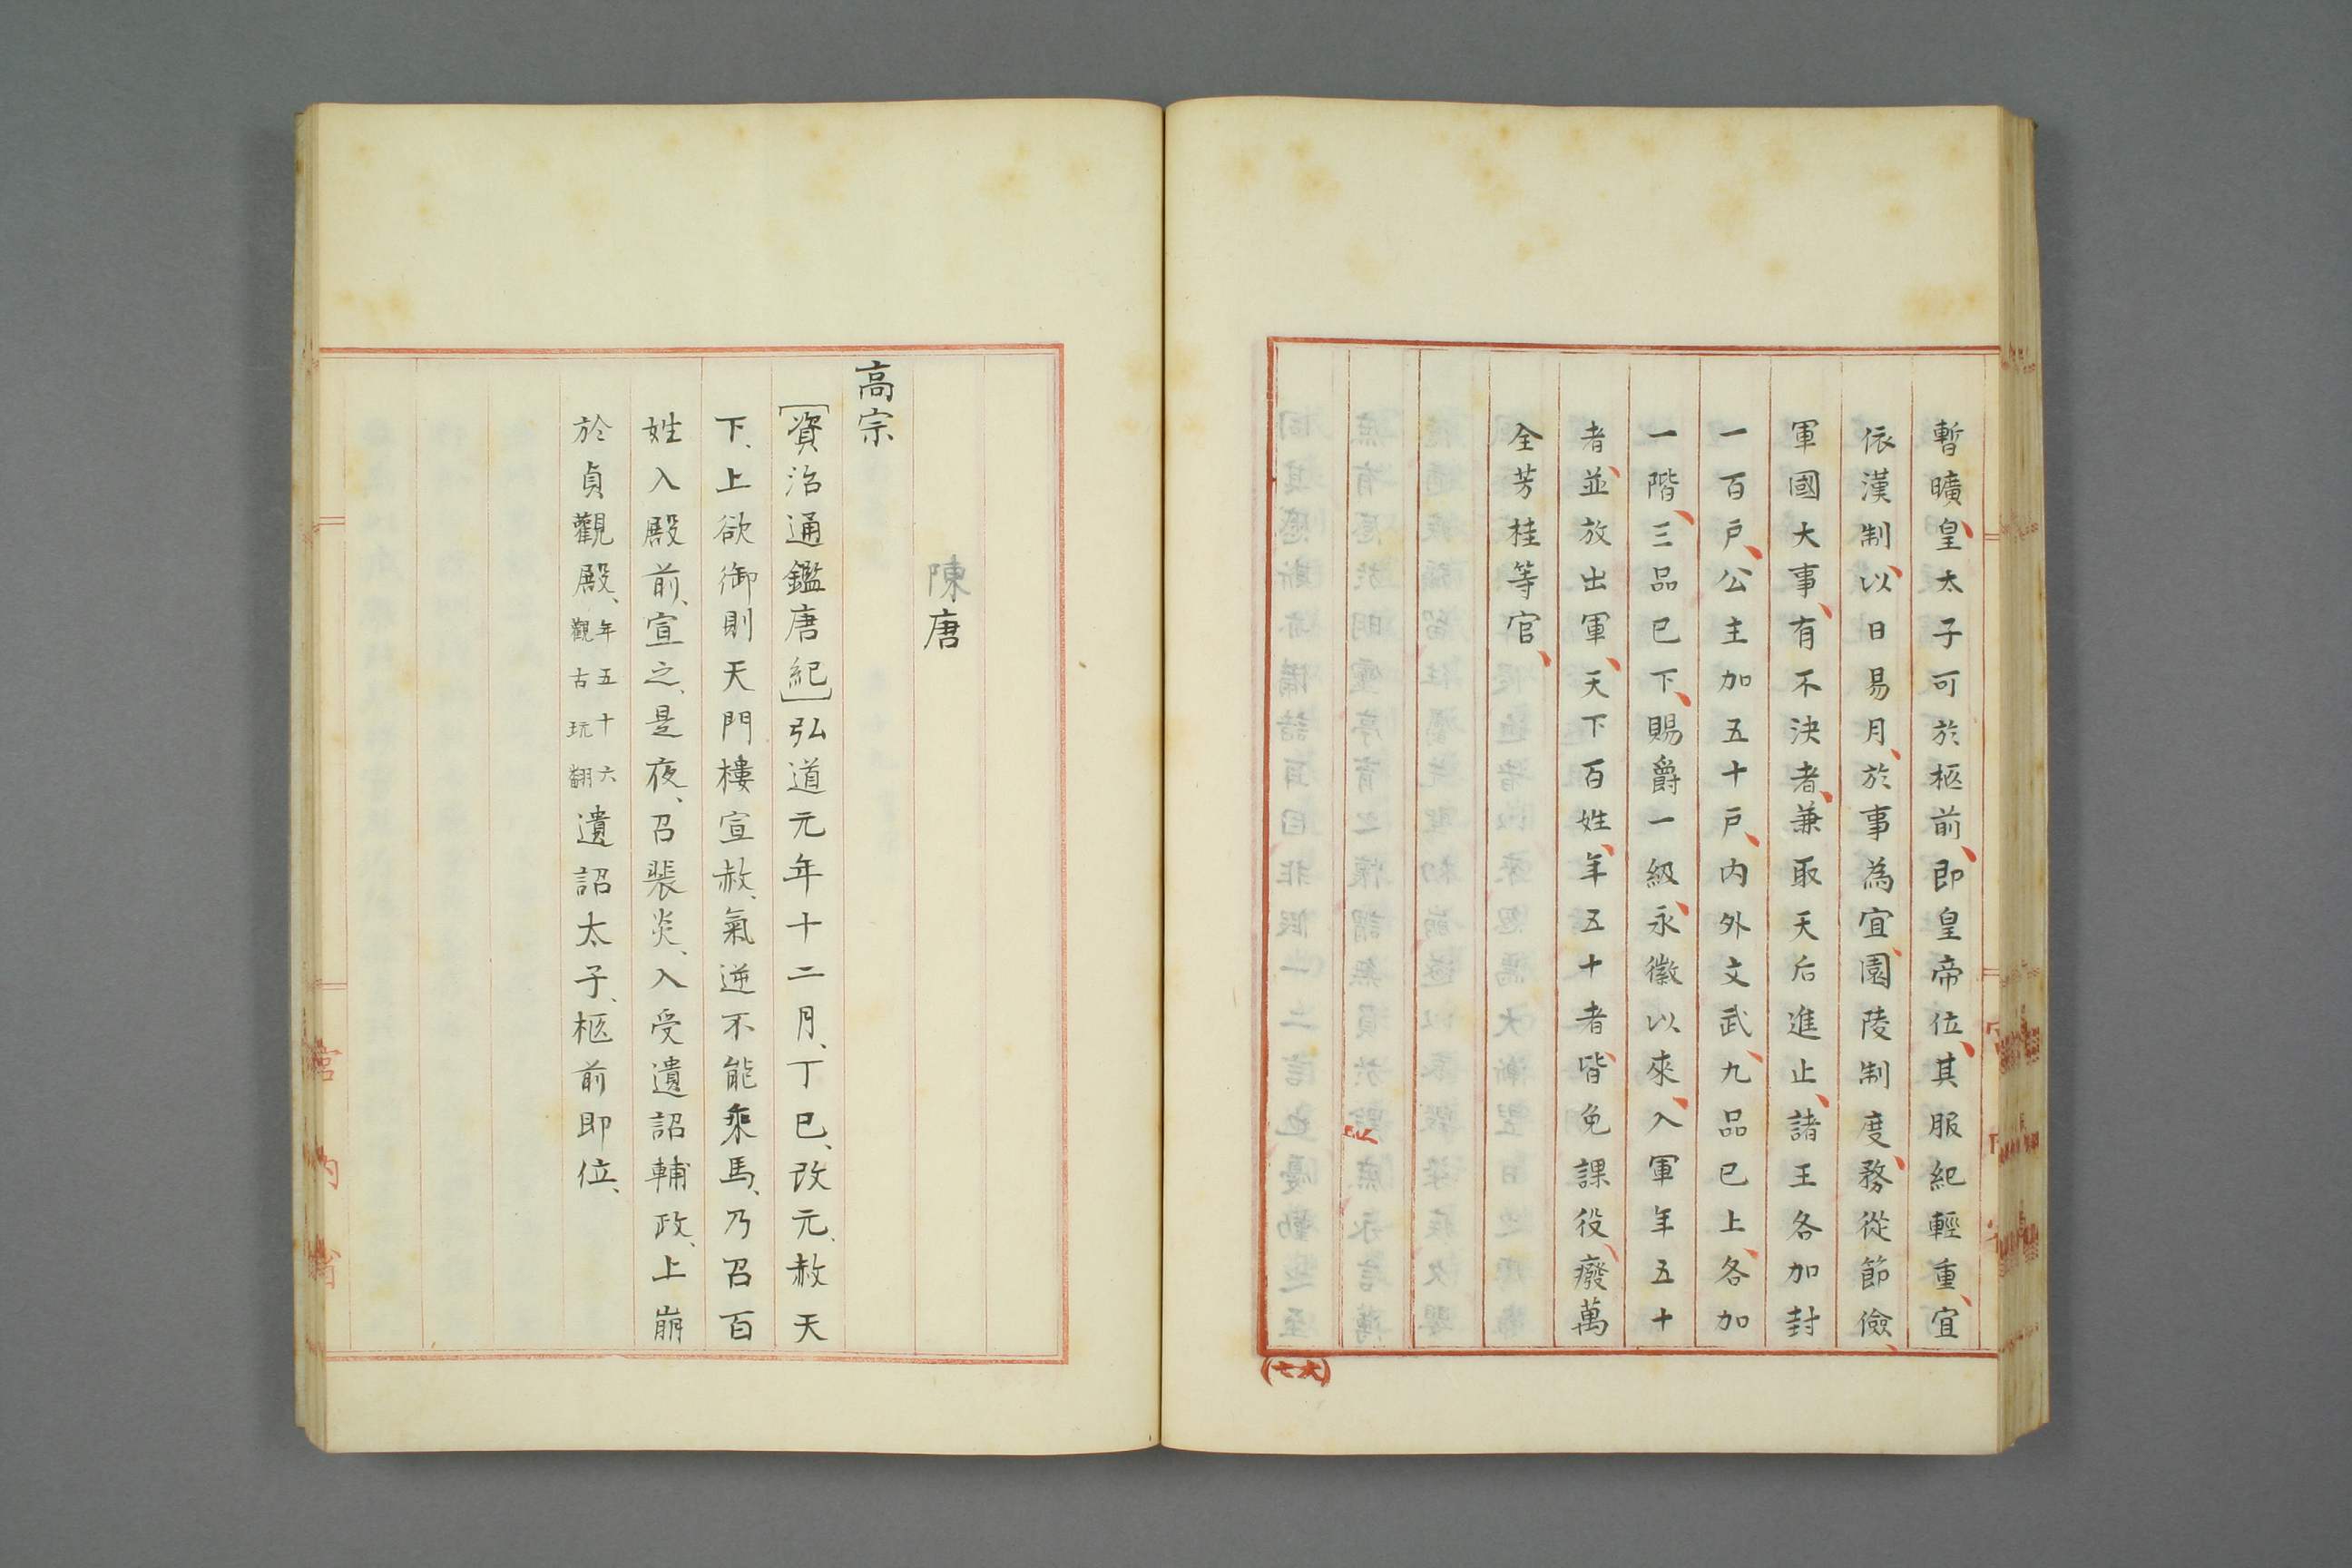 暫曠、皇太子可於柩前、即皇帝位、其服紀輕重、宜
依漢制、以日易月、於事為宜、園陵制度、務從節儉、
軍國大事、有不決者、兼取天后進止、諸王各加封
一百戶、公主加五十戶、内外文武、九品已上、各加
一階、三品已下、賜爵一級、永徽以來、入軍年五十
者、並放出軍、天下百姓、年五十者、皆免課役、廢萬
全芳桂等官、
(七大)
陳唐
高宗
[資治通鑑唐紀]弘道元年十二月、丁巳、改元、赦天
下、上欲御則天門樓宣赦、氣逆不能乘馬、乃召百
姓入殿前、宣之、是夜、召裴炎、入受遺詔輔政、上崩
於貞觀殿、年五十六觀古玩翻遺詔太子、柩前即位、
宮内省